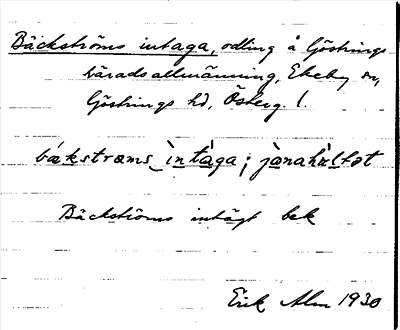 Bäckströms intaga, odling å Göstrings
häradsallmänning, Ekeby sn,
Göstrings hd, Österg. l.
bákstrœms ìntàga; jànahùltət
Bäckströms intägt bek
Erik Alm 1930